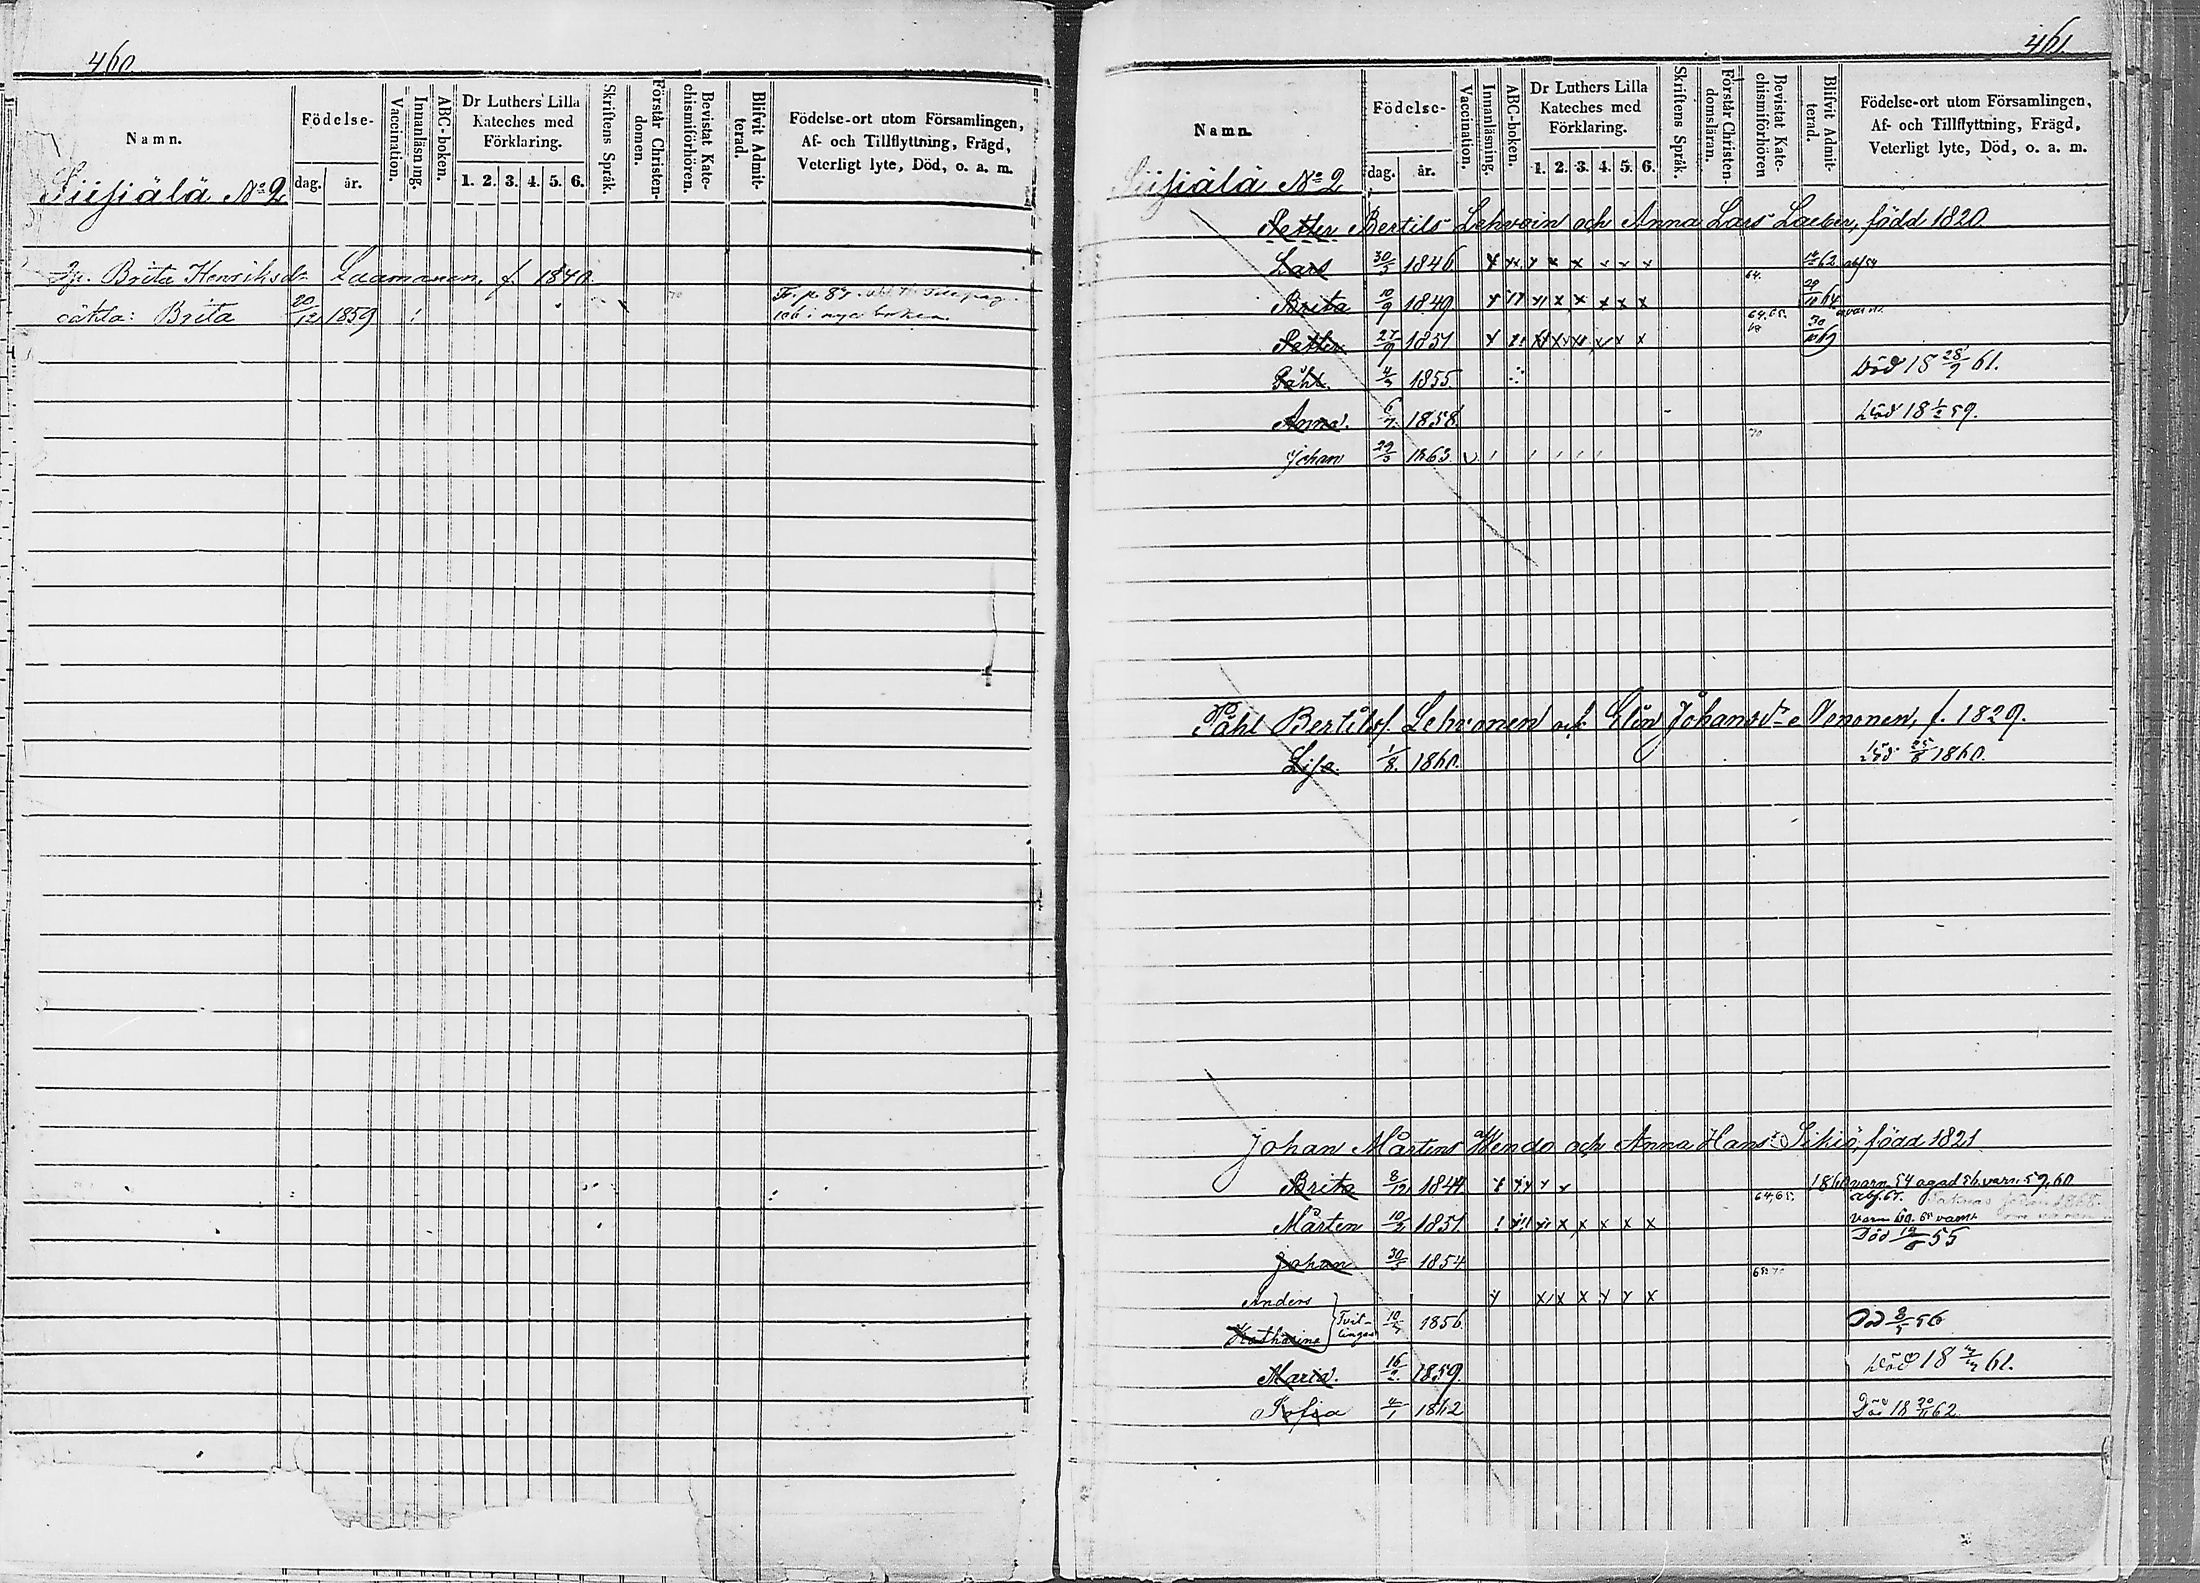 460
Namn.
Födelse-
dag.
år.
Vaccination.
Innanläsning.
ABC-boken.
Dr Luthers Lilla
Kateches med
Förklaring.
1. 2. 3. 4. 5. 6.
Skriftens Språk.
Förstår Christen-
domen.
Bevistat Kate-
chismiförhören.
Blifvit Admit-
terad.
Födelse-ort utom Församlingen,
Af- och Tillflyttning, Frägd,
Veterligt lyte, Död, o. a. m.
Siisiälä No 2
Brita Henriksdr Laamanen, f. 1840.
oäkta: Brita 20/12 1859 Fr. p. 87.
106 i nya boken.
461
Namn.
Födelse-
dag.
år.
Vaccination.
Innanläsning.
ABC-boken.
Dr Luthers Lilla
Kateches med
Förklaring.
1. 2. 3. 4. 5. 6.
Skriftens Språk.
Förstår Christen-
domsläran.
Bevistat Kate-
chismiförhören
Blifvit Admit-
terad.
Födelse-ort utom Församlingen,
Af- och Tillflyttning, Frägd,
Veterligt lyte, Död, o. a. m.
Siisiälä No 2
Petter Bertils Lehvoin och Anna Lars Laeben, född 1820.
Lars 30/3 1846. 64. 62
Brita 10/9 1849. 64. 65. 64
Petter 27/9 1851 69
Påhl. 4/3 1855. Död 18 28/7 61.
Anna. 1858. Död 18 1/2 59.
Johan 1863. 70
Påhl Bertilsf. Lehvonen och Elin Johansdr Venonen, f. 1829.
Lisa. 1/8. 1860. Död 25/8 1860.
Johan Mårtens Wendo och Anna Hans Sikiö, född 1821
Brita 8/12 1849 64, 65. 1860 varn. 54 agad 56. varn. 59, 60
Mårten 1851
Johan 30/3 1854 Död 55
Anders
Katharina } Tvil-
lingar 1856 Död 56
Maria. 16/2 1859. Död 18 61.
Sofia 4/1 1862 Död 18 62.